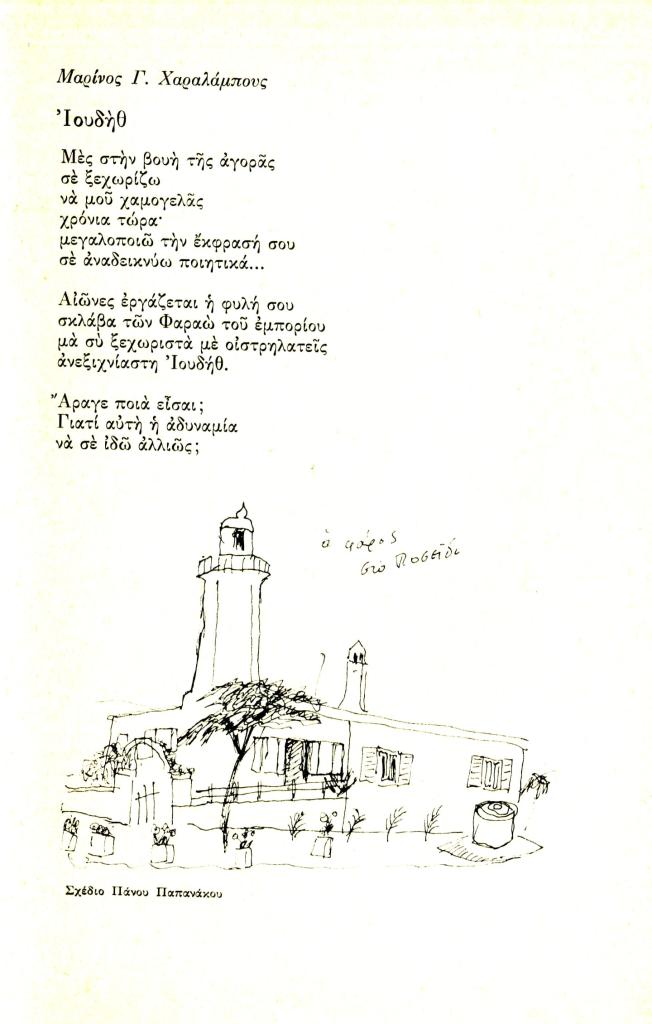 Μαρίνος Γ. Χαραλάμπους
Ἰουδὴθ
Μὲς στὴν βουὴ τῆς ἀγορᾶς
σὲ ξεχωρίζω
νὰ μοῦ χαμογελᾶς
χρόνια τώρα·
μεγαλοποιῶ τὴν ἔκφρασή σου
σὲ ἀναδεικνύω ποιητικά...
Αἰῶνες ἐργάζεται ἡ φυλή σου
σκλάβα τῶν Φαραὼ τοῦ ἐμπορίου
μὰ σὺ ξεχωριστὰ μὲ οἰστρηλατεῖς
ἀνεξιχνίαστη Ἰουδήθ.
Ἄραγε ποιὰ εἶσαι;
Γιατί αὐτὴ ἡ ἀδυναμία
νὰ σὲ ἰδῶ ἀλλιῶς;
ὁ φάρος
στὸ Ποσεῖδι
Σχέδιο Πάνου Παπανάκου